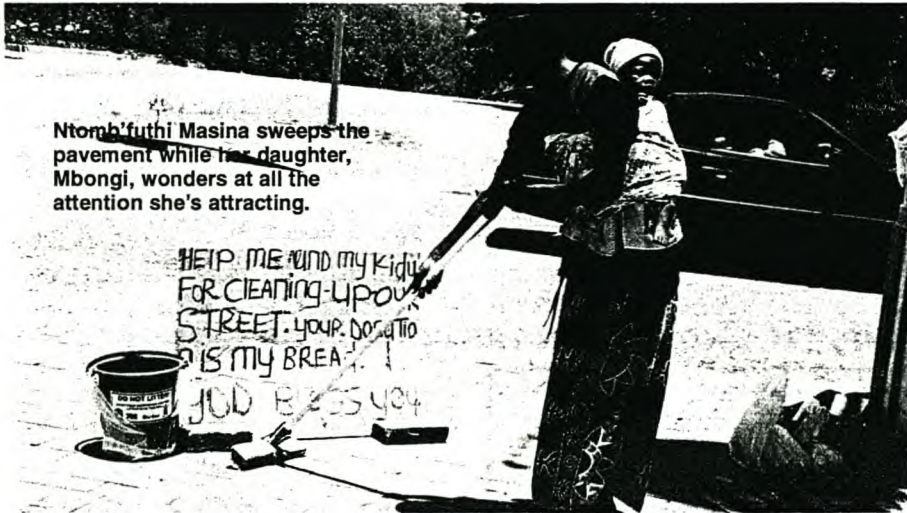 Ntomb'futhi Masina sweeps the
pavement while her daughter,
Mbongi, wonders at all the
attention she's attracting.
HEIP ME AND my Kidy's
FOR ClEANing-UP OUR
STREET. YOUR. DONATIO
IS MY BREAD.
BLESS YOU
DO NOT LITTER!